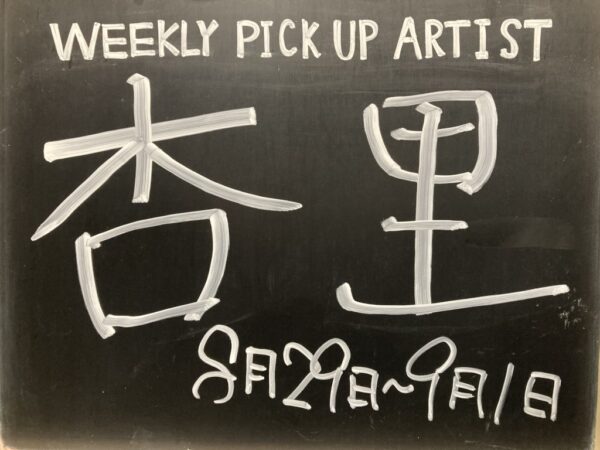 WEEKLY PICK UP ARTIST
杏里
8月29日~9月1日